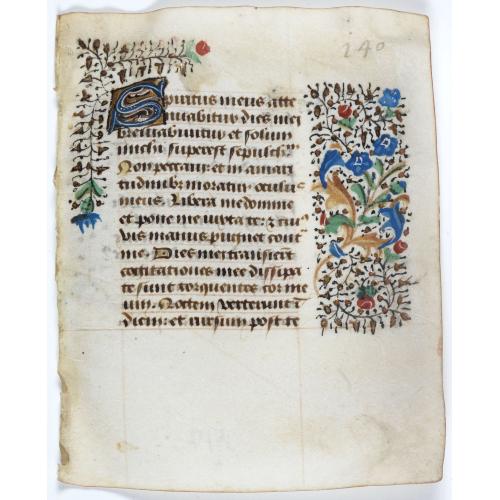 240
Spiritus meus atte
nuabitur dies mei
breviabuntur et solum
michi superest sepulchrum
Non peccavi et in amari
tudinib; moratur oculus
meus. Libera me domine
et pone me iuxta te: et cu
vis manus pugnet cont
me. Dies mei transierunt
cogitationes mee dissipa
te sunt torquentes cor me
um. Noctem verterunt in
diem: et rursum post te